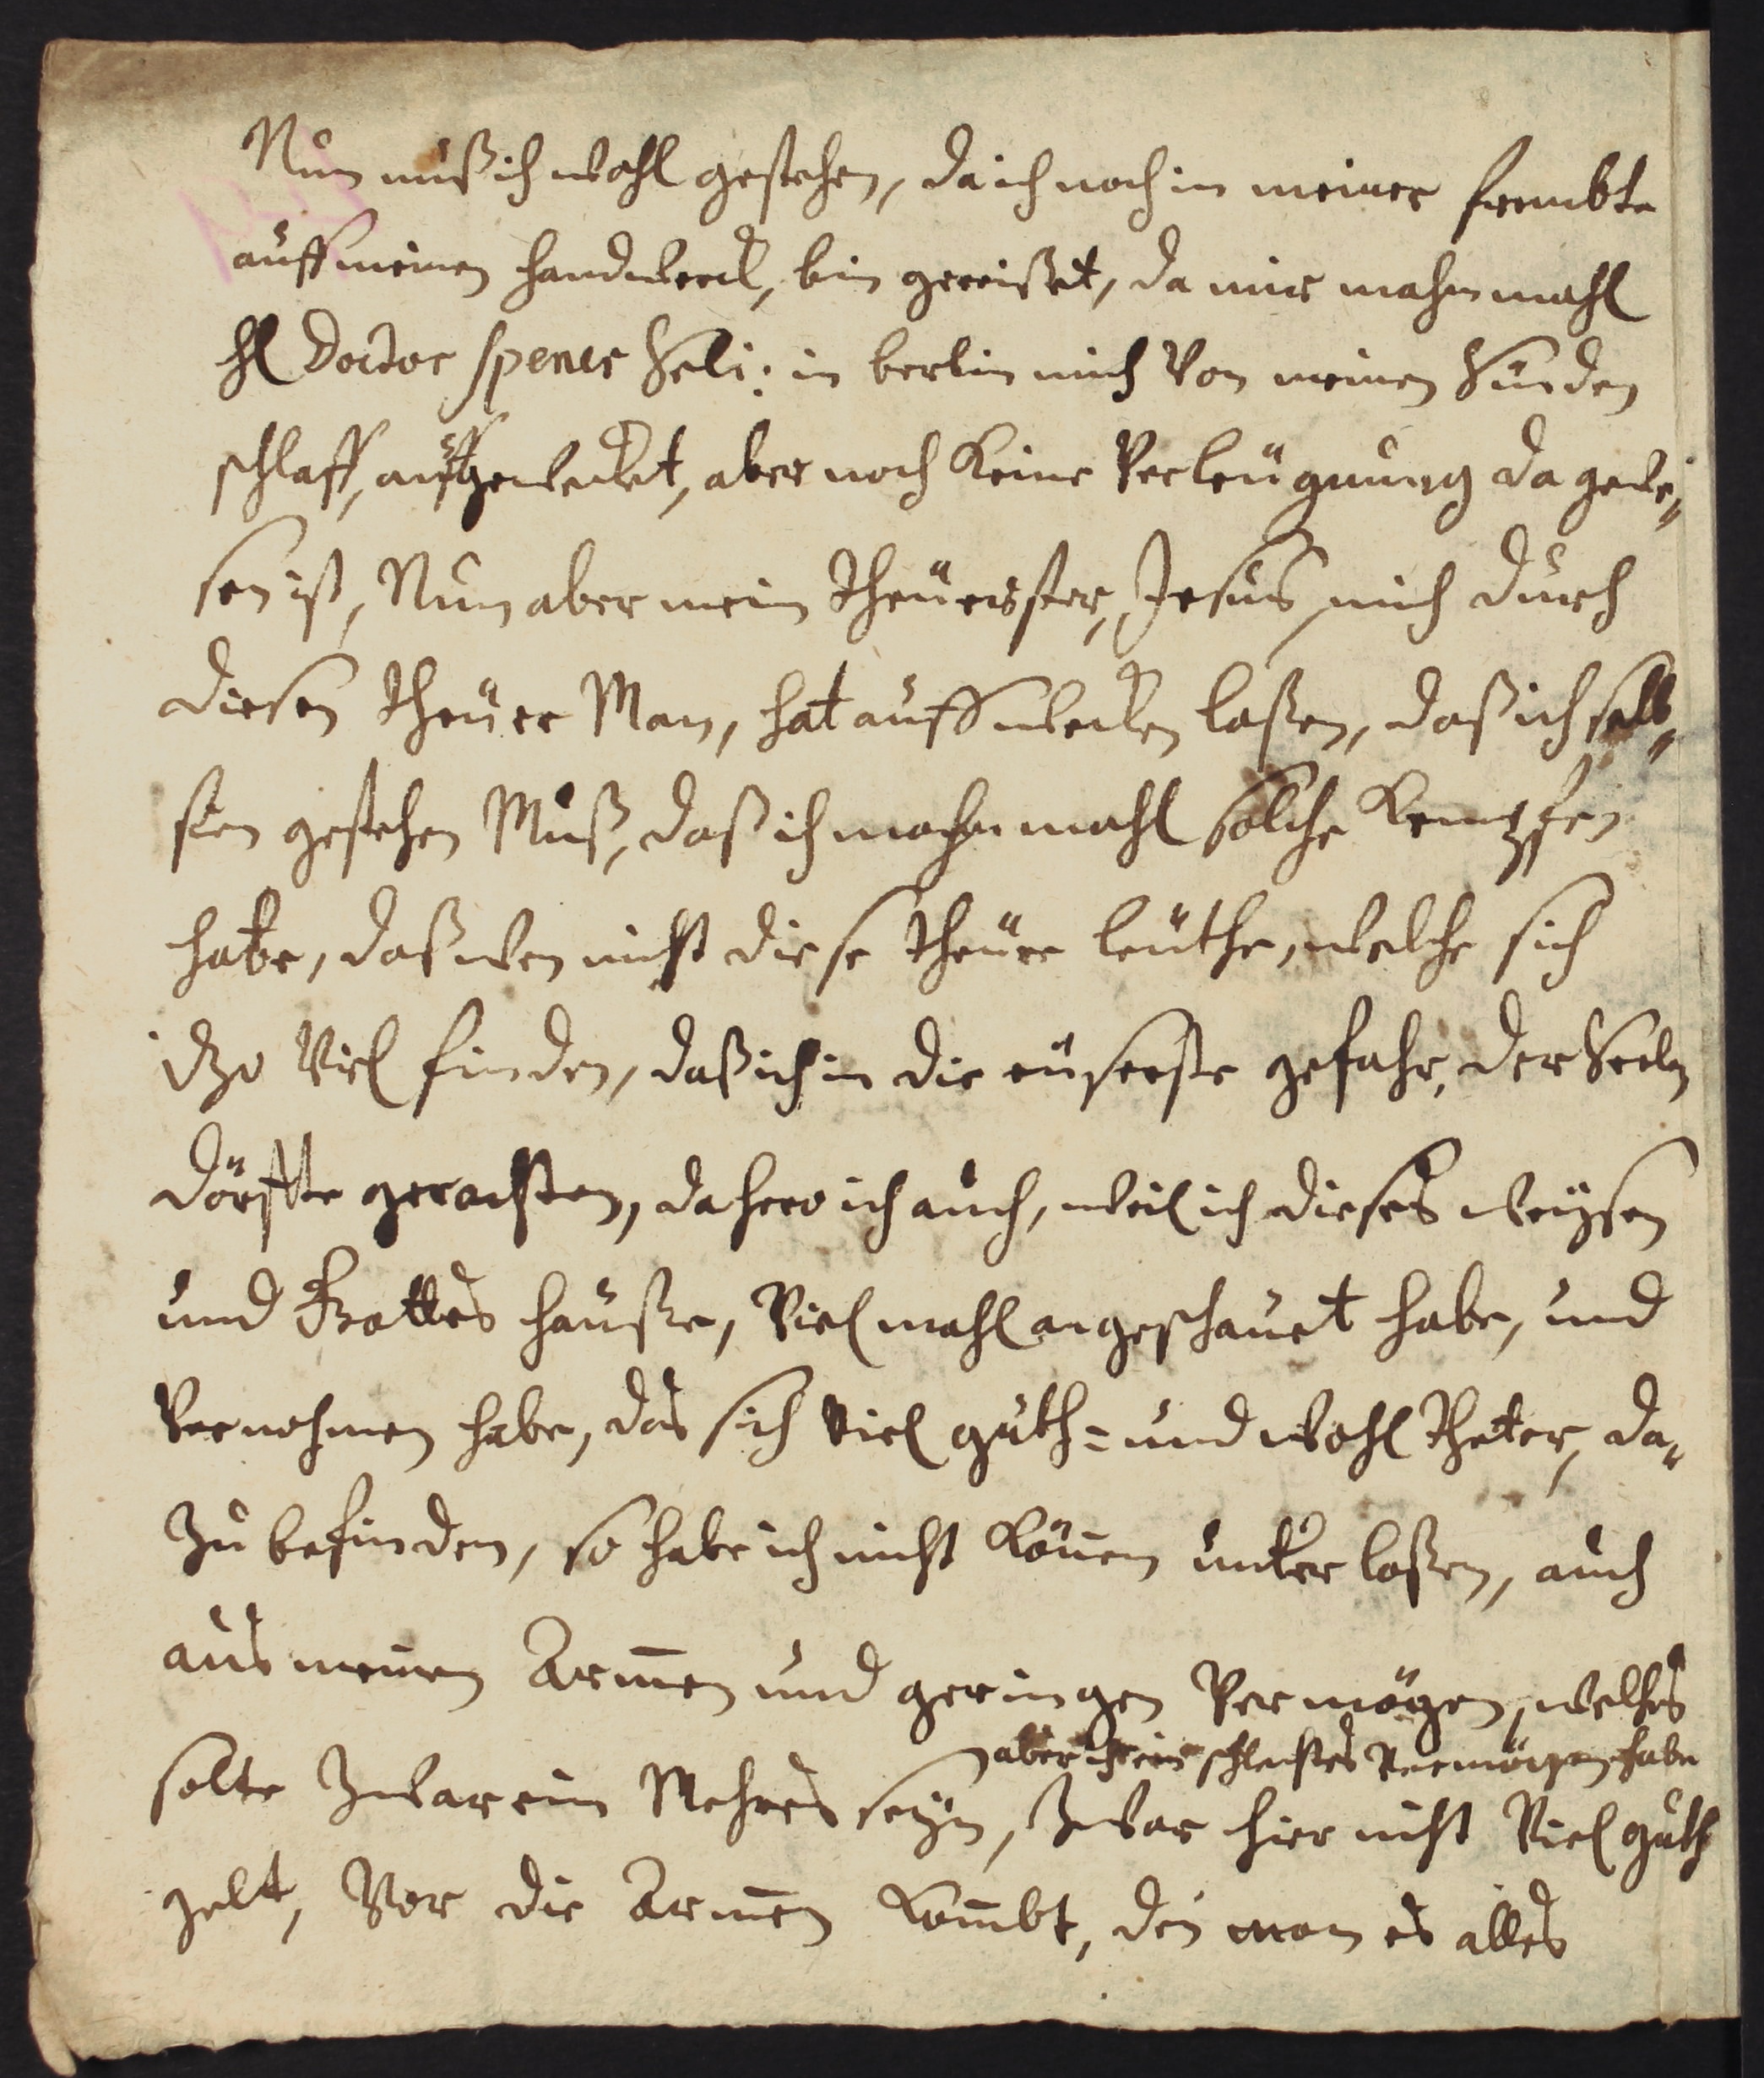 Nun muß ich wohl gestehen, da ich noch in meiner frembte
auff meinen handwerck, bin gereißet, da mir manchmahl
Hl Doctor Spener Seli: in berlin mich Von meinen Sünden
schlaff, auffgewecket, aber noch Keine Verleügnung da gewe„
sen ist, Nun aber mein Theüerster, Jesus mich durch
diesen theüre Man, hat auff wecken laßen, daß ich selb„
sten gestehen Muß, daß ich manchmahl solche Kempfen
habe, daß wen nicht diese theüre leuthe, welche sich
itzo Viel finden, daß ich in die eüserste gefahr, der Seelen
dörffte gerachten, dahero ich auch, weil ich dieses Weysen
und Gottes hauße, Viel mahl angeschauet habe, und
Vernohmen habe, das sich Viel guth= und wohl theter, da„
zu befinden, so habe ich nicht Können unter laßen, auch
aus meinen Armen und geringen Vermögen, welches
aber ich ein schlechtes Vermögen habe
solte zwar ein Mehres seyn, zwar hier nicht Viel guth
gelt, Vor die Armen Kombt, den man es alles